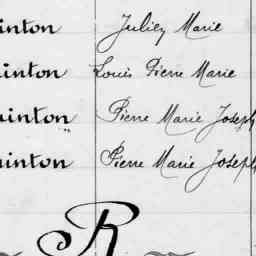 inton Julien Marie
uinton Louis Pierre Marie
uinton Pierre Marie Joseph
uinton Pierre Marie Joseph
R